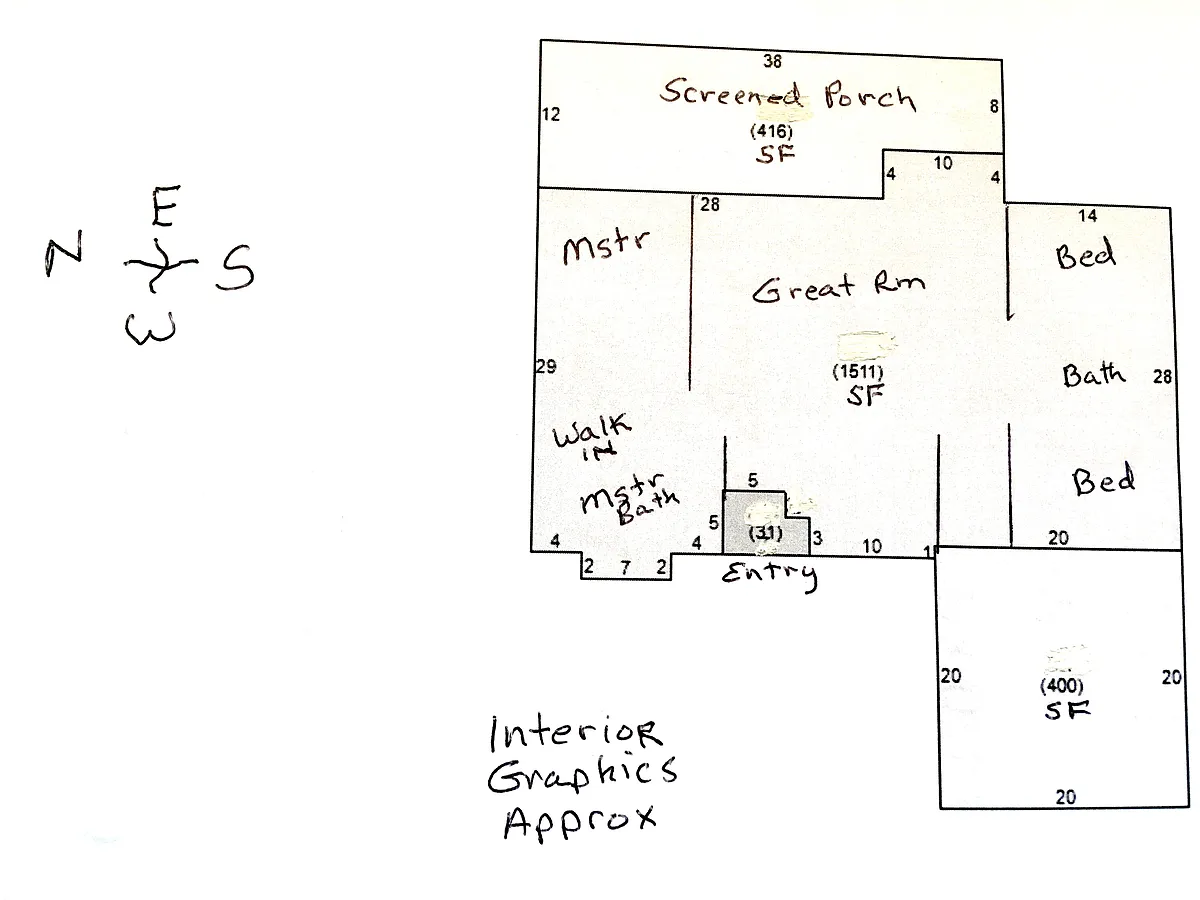 38
Screened Porch
12
8
(416)
SF
10
4
4
E
N
S
W
28
14
Mstr
Bed
Great Rm
29
(1511)
SF
Bath
28
Walk
IN
Mstr
Bath
5
Bed
5
(31)
3
4
4
10
1
20
2
7
2
Entry
20
20
(400)
SF
Interior
Graphics
Approx
20